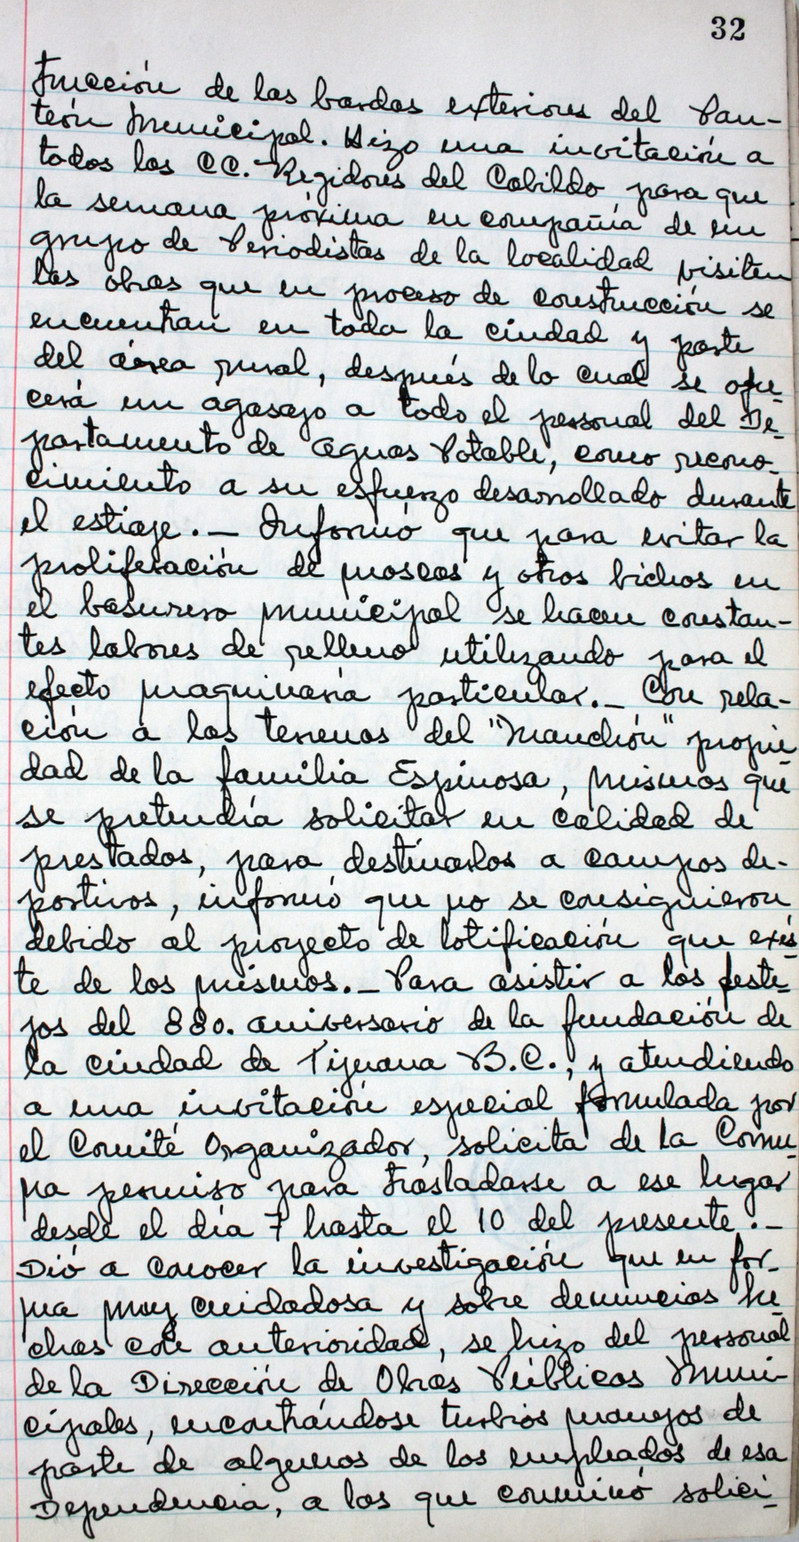 32
trucción de las bardas exteriores del Pan-
teón Municipal. Hizo una invitación a
todos los CC. Regidores del Cabildo para que
la semana próxima en compañía de un
grupo de Periodistas de la localidad visiten
las obras que en proceso de construcción se
encuentran en toda la ciudad y parte
del área rural, después de lo cual se ofre-
cerá un agasajo a todo el personal del De-
partamento de Aguas Potable, como recono-
cimiento a su esfuerzo desarrollado durante
el estiaje.- Informó que para evitar la
proliferación de moscas y otros bichos en
el basurero municipal se hacen constan-
tes labores de relleno utilizando para el
efecto maquinaria particular.- Con rela-
ción a los terrenos del "Manchón" propie-
dad de la familia Espinosa, mismos que
se pretendía solicitar en calidad de
prestados, para destinarlos a campos de-
portivos, informó que no se consiguieron
debido al proyecto de lotificación que exis-
te de los mismos.- Para asistir a los feste-
jos del 88o. aniversario de la fundación de
la ciudad de Tijuana B.C., y atendiendo
a una invitación especial formulada por
el Comité Organizador, solicita de la Comu-
na permiso para trasladarse a ese lugar
desde el día 7 hasta el 10 del presente.-
Dió a conocer la investigación que en for-
ma muy cuidadosa y sobre denuncias he-
chas con anterioridad, se hizo del personal
de la Dirección de Obras Públicas Muni-
cipales, encontrándose turbios manejos de
parte de algunos de los empleados de esa
Dependencia, a los que conminó solici-